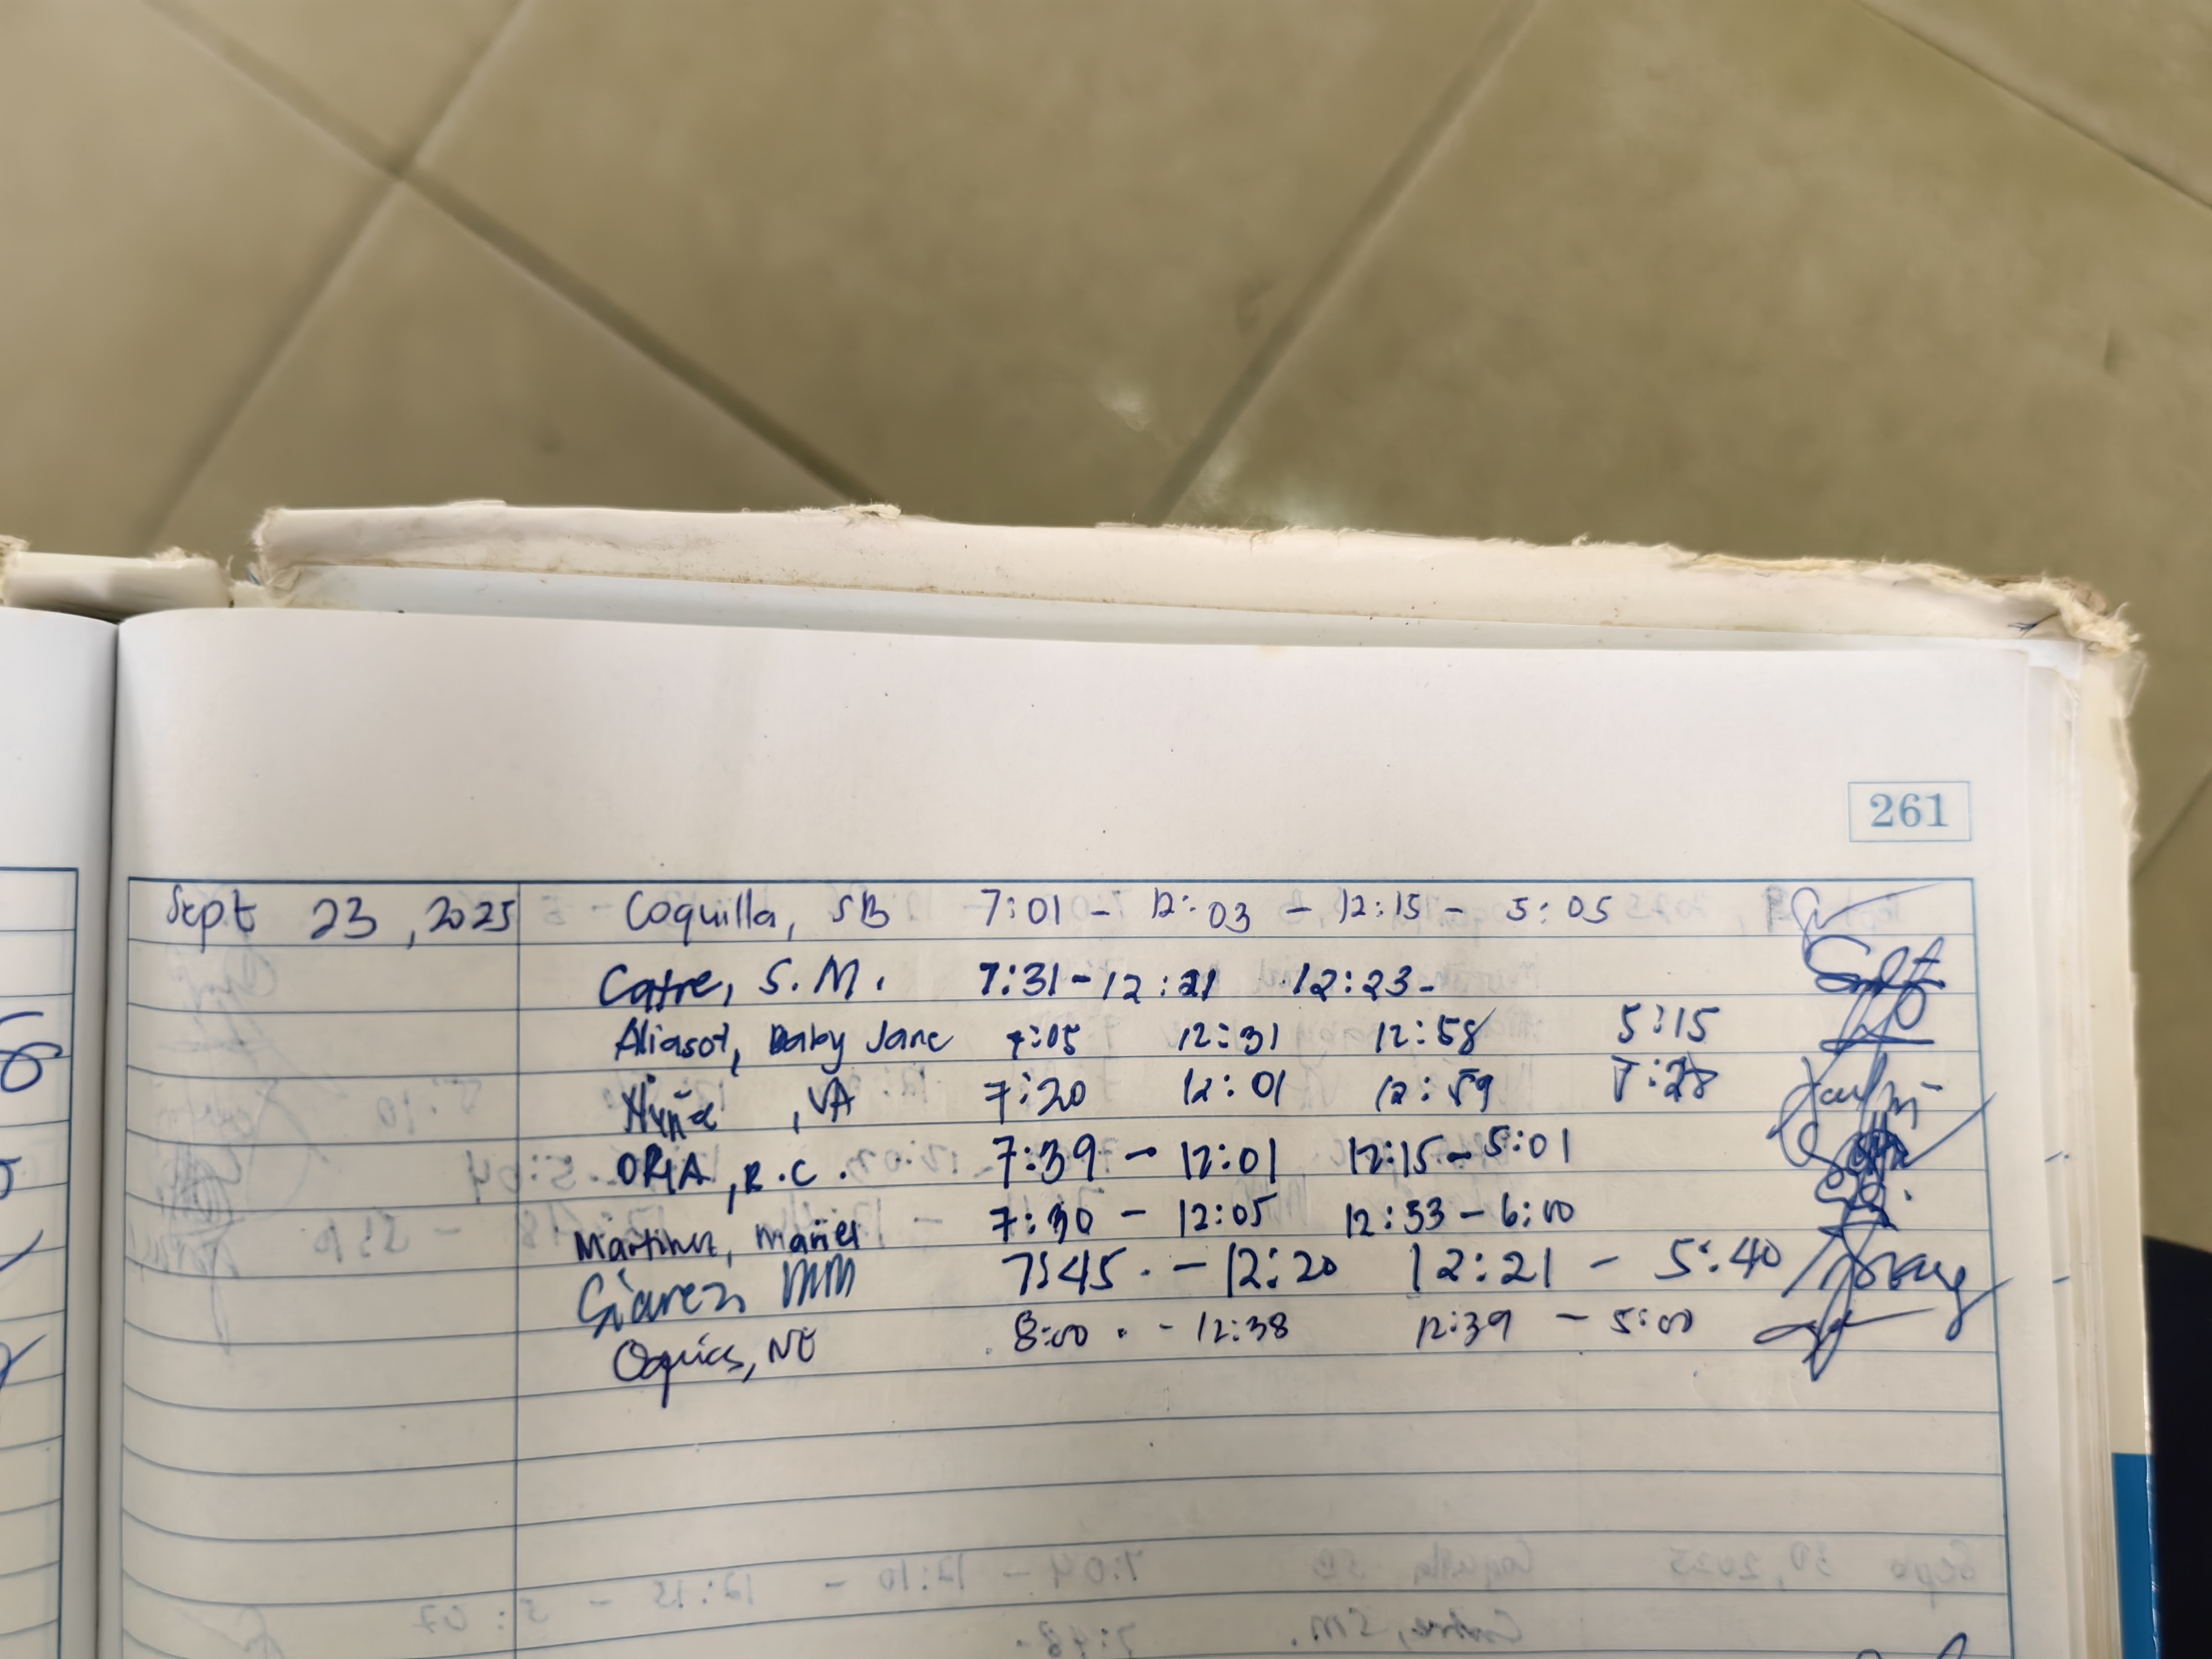 261
Sept 23, 2025 Coquilla, SB 7:01 - 12:03 - 12:15 - 5:05
Catre, S.M. 7:31 - 12:21 12:23 -
Aliasot, Baby Jane 7:05 12:31 12:58 5:15
, VA 7:20 12:01 12:59 5:28
ORIA, R.C. 7:39 - 12:01 12:15 - 5:01
Martinez, Mariel 7:30 - 12:05 12:33 - 6:00
MM 7:45 - 12:20 12:21 - 5:40
8:00 - 12:38 12:39 - 5:00